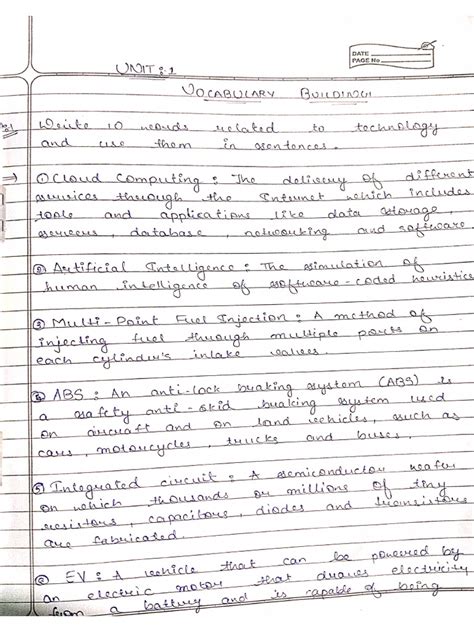 DATE
PAGE No
UNIT : 1
VOCABULARY BUILDING
Write 10 words related to technology
and use them in sentences.
⇒ ① Cloud Computing : The delivery of different
services through the Internet which includes
tools and applications like data storage,
servers, database, networking and software.
② Artificial Intelligence : The simulation of
human intelligence of software-coded heuristics
③ Multi-Point Fuel Injection : A method of
injecting fuel through multiple ports on
each cylinder's intake valves.
④ ABS : An anti-lock braking system (ABS) is
a safety anti-skid braking system used
on aircraft and on land vehicles, such as
cars, motorcycles, trucks and buses.
⑤ Integrated circuit : A semiconductor wafer
on which thousands or millions of tiny
resistors, capacitors, diodes and transistors
are fabricated.
⑥ EV : A vehicle that can be powered by
an electric motor that draws electricity
from a battery and is capable of being